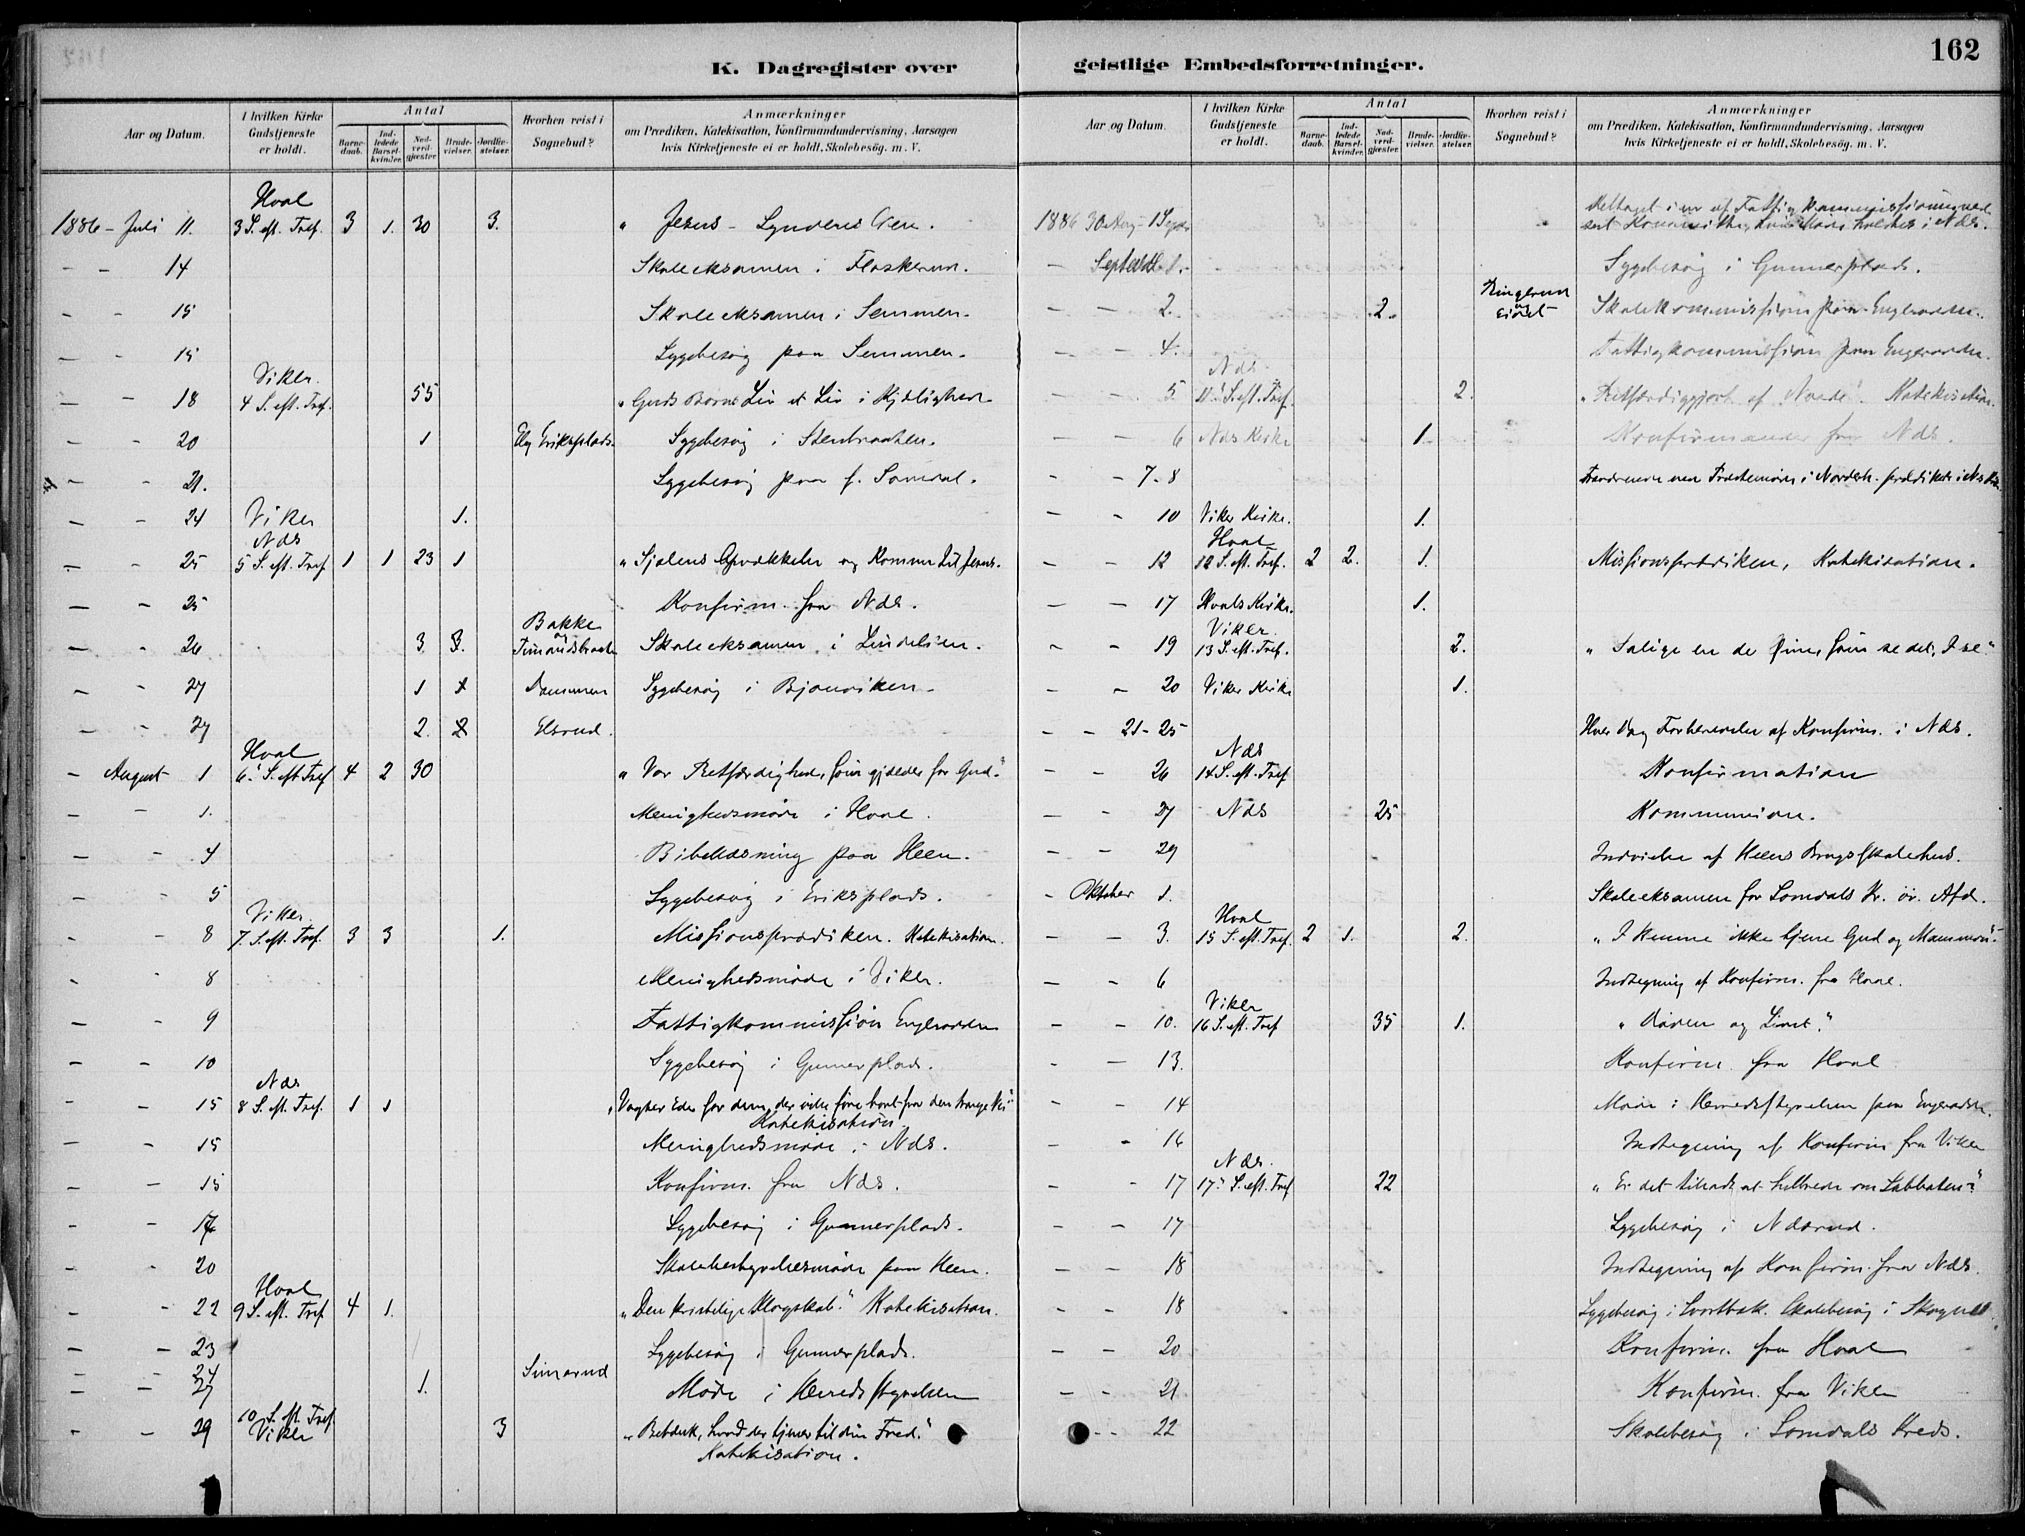 162
K. Dagregister over
Aar og Datum.
I hvilken Kirke Gudstjeneste er holdt.
Antal
Barnedaab.
Indledede Barselkvinder.
Nadverdgjæster.
Brudevielser.
Jordfæstelser.
Hvorhen reist i Sognebud?
Anmærkninger
om Prædiken, Katekisation, Konfirmandundervisning, Aarsagen
hvis Kirketjeneste ei er holdt, Skolebesøg. m. V.
1886 – Juli 11. Hval 3 S. eft. Tref. 3 1. 30 3. „ Jesus – Synderes Ven.
– – 14 Skoleeksamen i Flaskerud.
– – 15 Skoleeksamen i Semmen.
– – 15 Sygebesøg paa Semmen.
– – 18 Viker. 4 S. eft. Tref. 55 „Guds Børns Liv et Liv i Kjærlighed
– – 20 1 Eriksplads. Sygebesøg i Stenbraaten.
– – 21. Sygebesøg paa f. Somdal.
– – 24 Viker 1.
– – 25 Næs 5 S. eft. Tref. 1 1 23 1 „Sjælens Opvækkelse og Komme til Jesus.
– – 25 Konfirm. fra Næs.
– – 26 3 3. Bakke og Skoleeksamen i Lindelien.
– – 27 1 Dammen Sygebesøg i Bjonviken.
– – 27 2. Elsrud.
– August 1 Hval 6. S. eft. Tref 4 2 30 „Vor Retfærdighed, som gjælder for Gud."
– – 1. Menighedsmøde i Hval.
– – 4 Bibellæsning paa Heen.
– – 5 Sygebesøg i Eriksplads.
– – 8 Viker. 7. S. eft. Tref. 3 3 1. Missionsprædiken. Katekisation.
– – 8 Menighedsmøde i Viker.
– – 9 Fattigkommission Engerodden
– – 10 Sygebesøg i Gunnerplads.
– – 15 Næs 8 S. eft. Tref. 1 1 „Vogter Eder for dem, der ville føre bort fra den trange Vei"
Katekisation.
– – 15 Menighedsmøde i Næs.
– – 15 Konfirm. fra Næs.
– – 17 Sygebesøg i Gunnerplads.
– – 20 Skolebestyrelsesmøde paa Heen.
– – 22 Hval 9 S. eft. Tref 4 1. „Den kristelige Klogskab." Katekisation.
– – 23 Sygebesøg i Gunnerplads.
– – 24
– – 27 1. Simarud Møde i Herredsstyrelsen
– – 29 10 S. eft. Tref. Viker 3 „Betænk, hvad der tjener til din Fred."
Katekisation.
geistlige Embedsforretninger.
Aar og Datum.
I hvilken Kirke Gudstjeneste er holdt.
Antal
Barnedaab.
Indledede Barselkvinder.
Nadverdgjæster.
Brudevielser.
Jordfæstelser.
Hvorhen reist i Sognebud?
Anmærkninger
om Prædiken, Katekisation, Konfirmandundervisning, Aarsagen
hvis Kirketjeneste ei er holdt, Skolebesøg. m. V.
1886 30 Aug – 1 Septbr Deltaget i en af Fattigkommissionen
i Næs.
– Septbr 1. Sygebesøg i Gunnerplads.
– – 2. 2. Ringerud og Eidet Skolekommission paa Engerodden.
– – 4. Fattigkommission paa Engerodden.
– – 5 Næs 11. S. eft. Tref. 2. „Retfærdiggjort af Naade". Katekisation.
– – 6 Næs Kirke 1. Konfirmander fra Næs.
– – 7-8 i Norderh.
– – 10 Viker Kirke. 1.
– – 12 Hval 12 S. eft. Tref. 2 2. 1. Missionsprædiken, Katekisation.
– – 17 Hvals Kirke. 1.
– – 19 Viker. 13 S. eft. Tref. 2. „ Salige er de Øine, som se det, I se."
– – 20 Viker Kirke 1.
– – 21-25 Hver Dag Forberedelse af Konfirm. i Næs.
– – 26 Næs 14 S. eft. Tref Konfirmation
– – 27 Næs 25 Kommunion.
– – 29 Indvielse af Heens Brugs Skolehus.
– Oktober 1. Skoleeksamen for Somdals Kr. øv. Afd.
– – 3. Hval 15 S. eft. Tref. 2 1. 2. „I kunne ikke tjene Gud og Mammon".
– – 6 Indtegning af Konfirm. fra Hval.
– – 10. Viker 16 S. eft. Tref 35 1. „ Døden og Livet."
– – 13. Konfirm. fra Hval
– – 14 Møde i Herredsstyrelsen paa Engerodden.
– – 16 Indtegning af Konfirm. fra Viker
– – 17 Næs. 17. S. eft. Tref 22 „ Er det tilladt at helbrede om Sabbaten"?
– – 17 Sygebesøg i Næsrud.
– – 18 Indtegning af Konfirm. fra Næs.
– – 18 Sygebesøg i Svartbæk. Skolebesøg i
– – 20 Konfirm. fra Hval
– – 21 Konfirm. fra Viker
– – 22 Skolebesøg i Somdals Kreds.